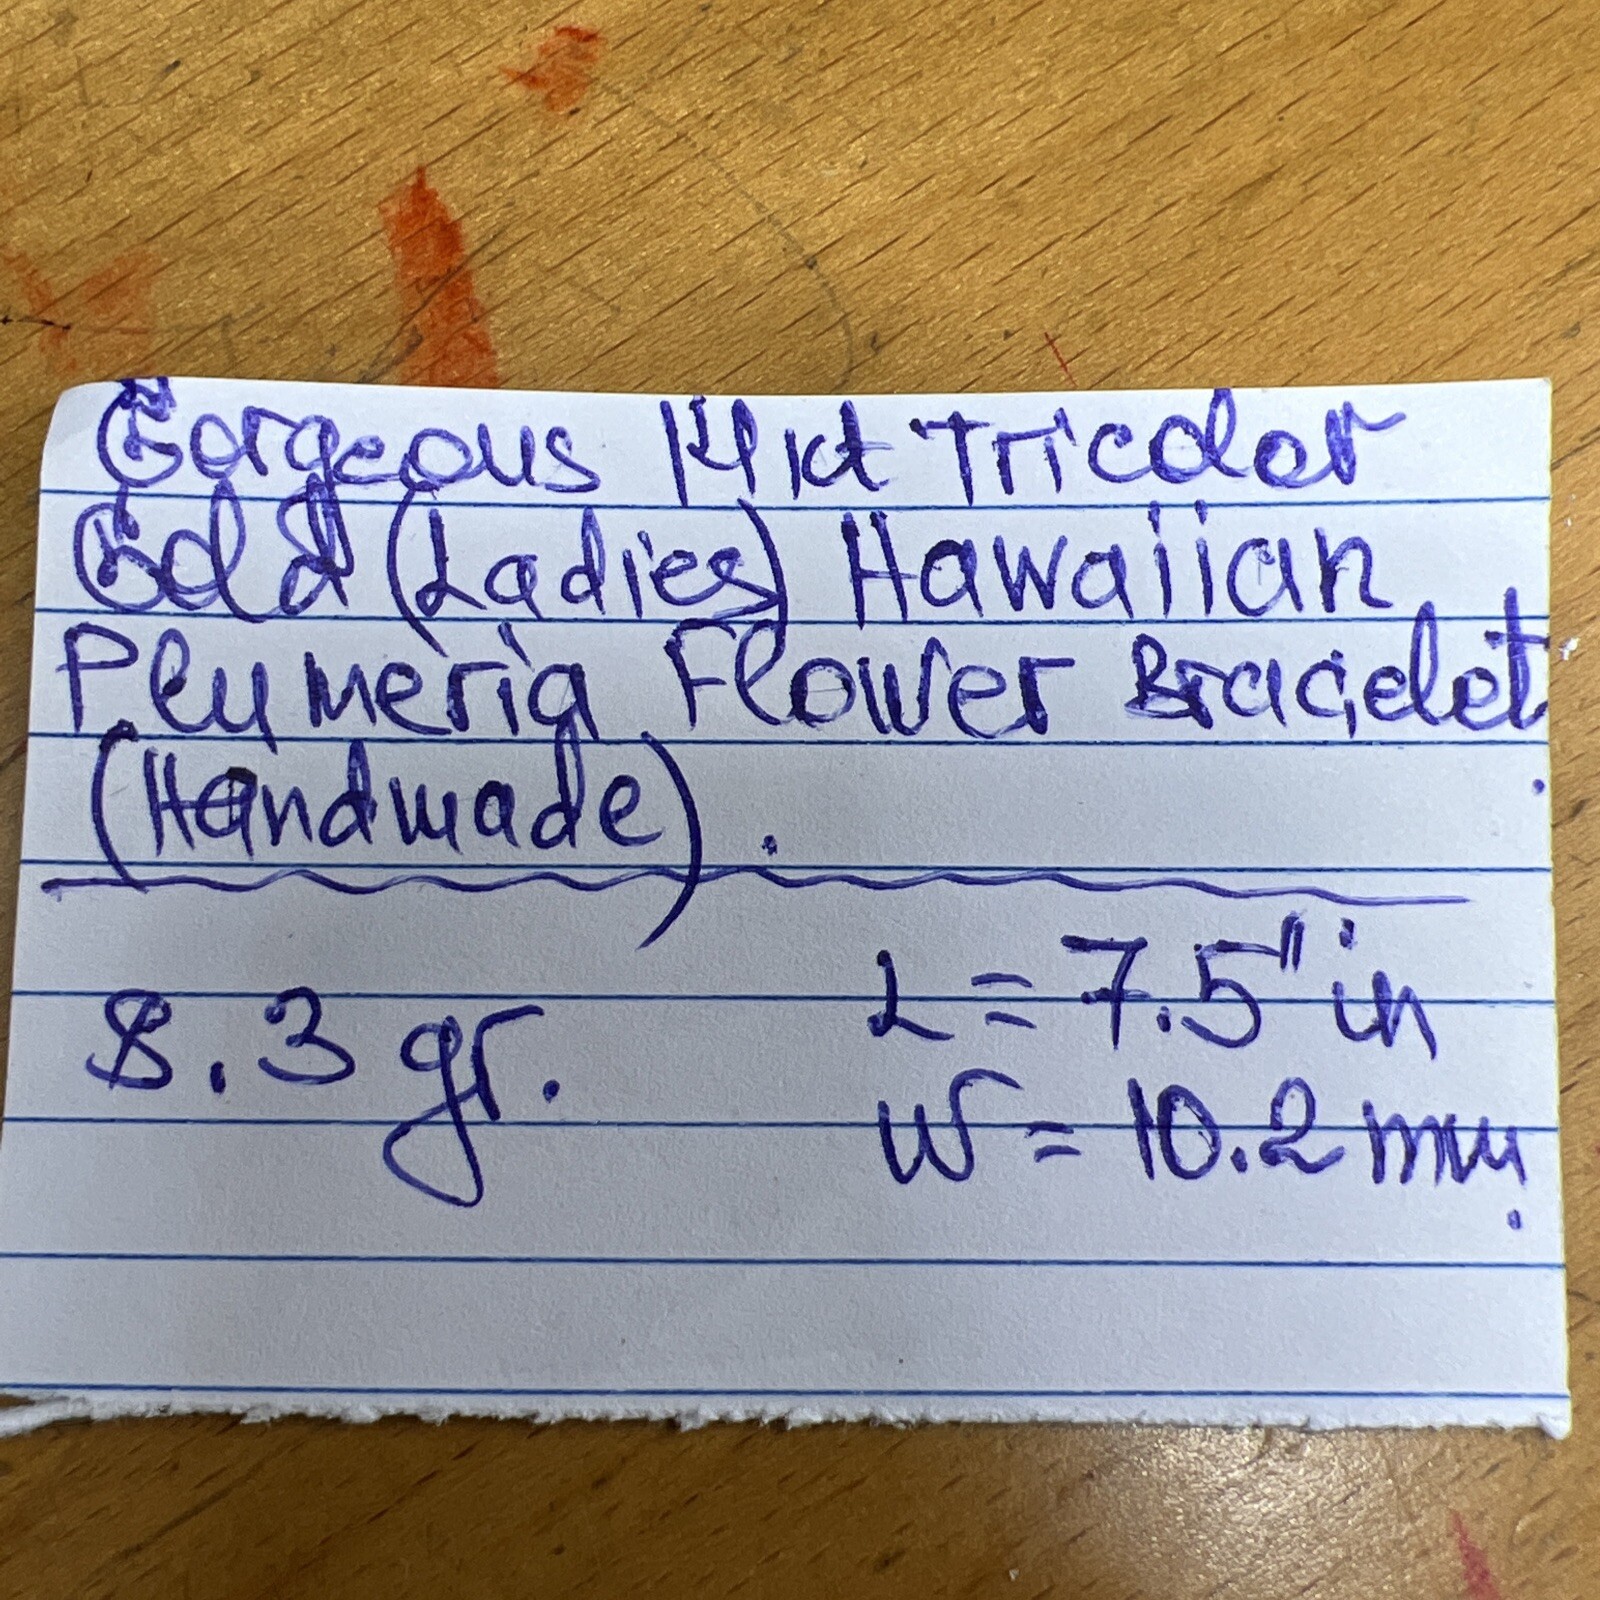 Gorgeous 14kt Tricolor
Gold (Ladies) Hawaiian
Plumeria Flower Bracelet
(Handmade).
8.3 gr.
L = 7.5" in
W = 10.2 mm.